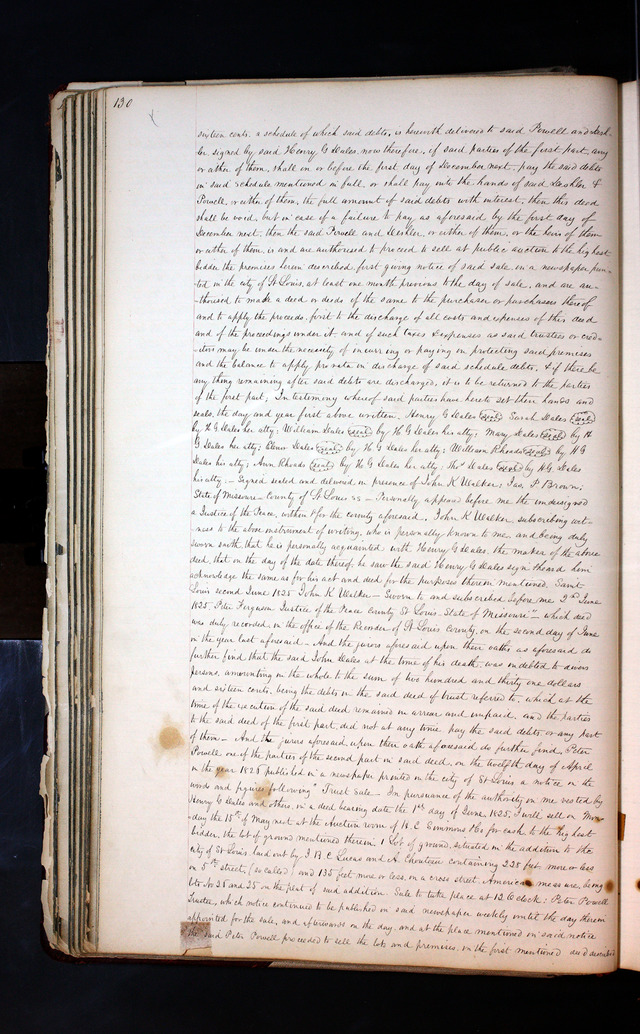 130
sixteen cents. a schedule of which said debts, is herewith delivered to said Powell and Desh-
ler. signed by said Henry G Dales, now therefore, if said parties of the first part, any
or either of them, shall on or before the first day of December next, pay the said debts
in said schedule mentioned in full, or shall pay into the hands of said Deshler &
Powell, or either of them, the full amount of said debts with interest, then this deed
shall be void, but in case of a failure to pay as aforesaid by the first day of
December next, then the said Powell and Deshler, or either of them, or the heirs of them
or either of them, is and are authorised to proceed to sell at public auction to the highest
bidder the premises herein described, first giving notice of said sale in a newspaper prin-
ted in the city of St Louis, at least one month previous to the day of sale, and are au-
-thorised to make a deed or deeds of the same to the purchaser or purchasers thereof
and to apply the proceeds, first to the discharge of all costs and expenses of this deed
and of the proceedings under it, and if such taxes & expenses as said trustees or cred-
-itors may be under the necessity of incurring or paying in protecting said premises
and the balance to apply pro rata in discharge of said schedule debts, & if there be
any thing remaining after said debts are discharged, it is to be returned to the parties
of the first part; In testimony whereof said parties have hereto set their hands and
seals, the day and year first above written. Henry G Dales (seal) Sarah Dales (seal)
by H G Dales her atty; William Dales (seal) by H G Dales his atty; Mary Dales (seal) by H
G Dales her atty; Dales (seal) by H G Dales her atty; William Rhoads (seal) by H G
Dales his atty; Ann Rhoads (seal) by H G Dales her atty; Thos Dales (seal) by H. G. Dales
his atty; - Signed sealed and delivered in presence of John K Walker; Jas. P Brown.
State of Missouri - County of St Louis ss - Personally appeared before me the undersigned
a Justice of the Peace, within & for the county aforesaid, John K Walker, subscribing wit-
ness to the above instrument of writing, who is personally known to me, and being duly
sworn saith, that he is personally acquainted with Henry G Dales, the maker of the above
deed, that on the day of the date thereof, he saw the said Henry G Dales sign & heard him
acknowledge the same as for his act and deed for the purposes therein mentioned, Saint
Louis second June 1825 John K Walker - Sworn to and subscribed before me 2nd June
1825 Peter Ferguson Justice of the Peace County St Louis State of Missouri" - which deed
was duly recorded in the office of the Recorder of St Louis County, on the second day of June
in the year last aforesaid - And the jurors aforesaid upon their oaths as aforesaid do
further find, that the said John Dales at the time of his death, was indebted to divers
persons, amounting in the whole to the sum of two hundred and thirty one dollars
and sixteen cents, being the debts in the said deed of trust referred to, which at the
time of the execution of the said deed remained in arrear and unpaid, and the parties
to the said deed of the first part, did not at any time pay the said debts or any part
of them - And the jurors aforesaid, upon their oath aforesaid do further find, Peter
Powell one of the parties of the second part in said deed, on the twelfth day of April
in the year 1828 published in a newspaper printed in the city of St Louis a notice in the
words and figures following "Trust Sale - In pursuance of the authority in me vested by
Henry G Dales and others, in a deed bearing date the 1st day of June, 1825, I will sell on Mon-
day the 15th of May next at the Auction room of H. C. Simmons & Co for cash to the highest
bidder, the lot of ground mentioned therein, 1 Lot of ground, situated in the addition to the
city of St Louis, laid out by J B C Lucas and A. Chouteau containing 225 feet more or less
on 5th street, (so called) and 135 feet, more or less, on a cross street, American measure, being
lots No 28 and 25 on the plat of said addition. Sale to take place at 12 Oclock; Peter Powell
Trustee, which notice continued to be published in said newspaper weekly until the day therein
appointed for the sale, and afterwards on the day, and at the place mentioned in said notice
the said Peter Powell proceeded to sell the lots and premises, in the first mentioned deed described